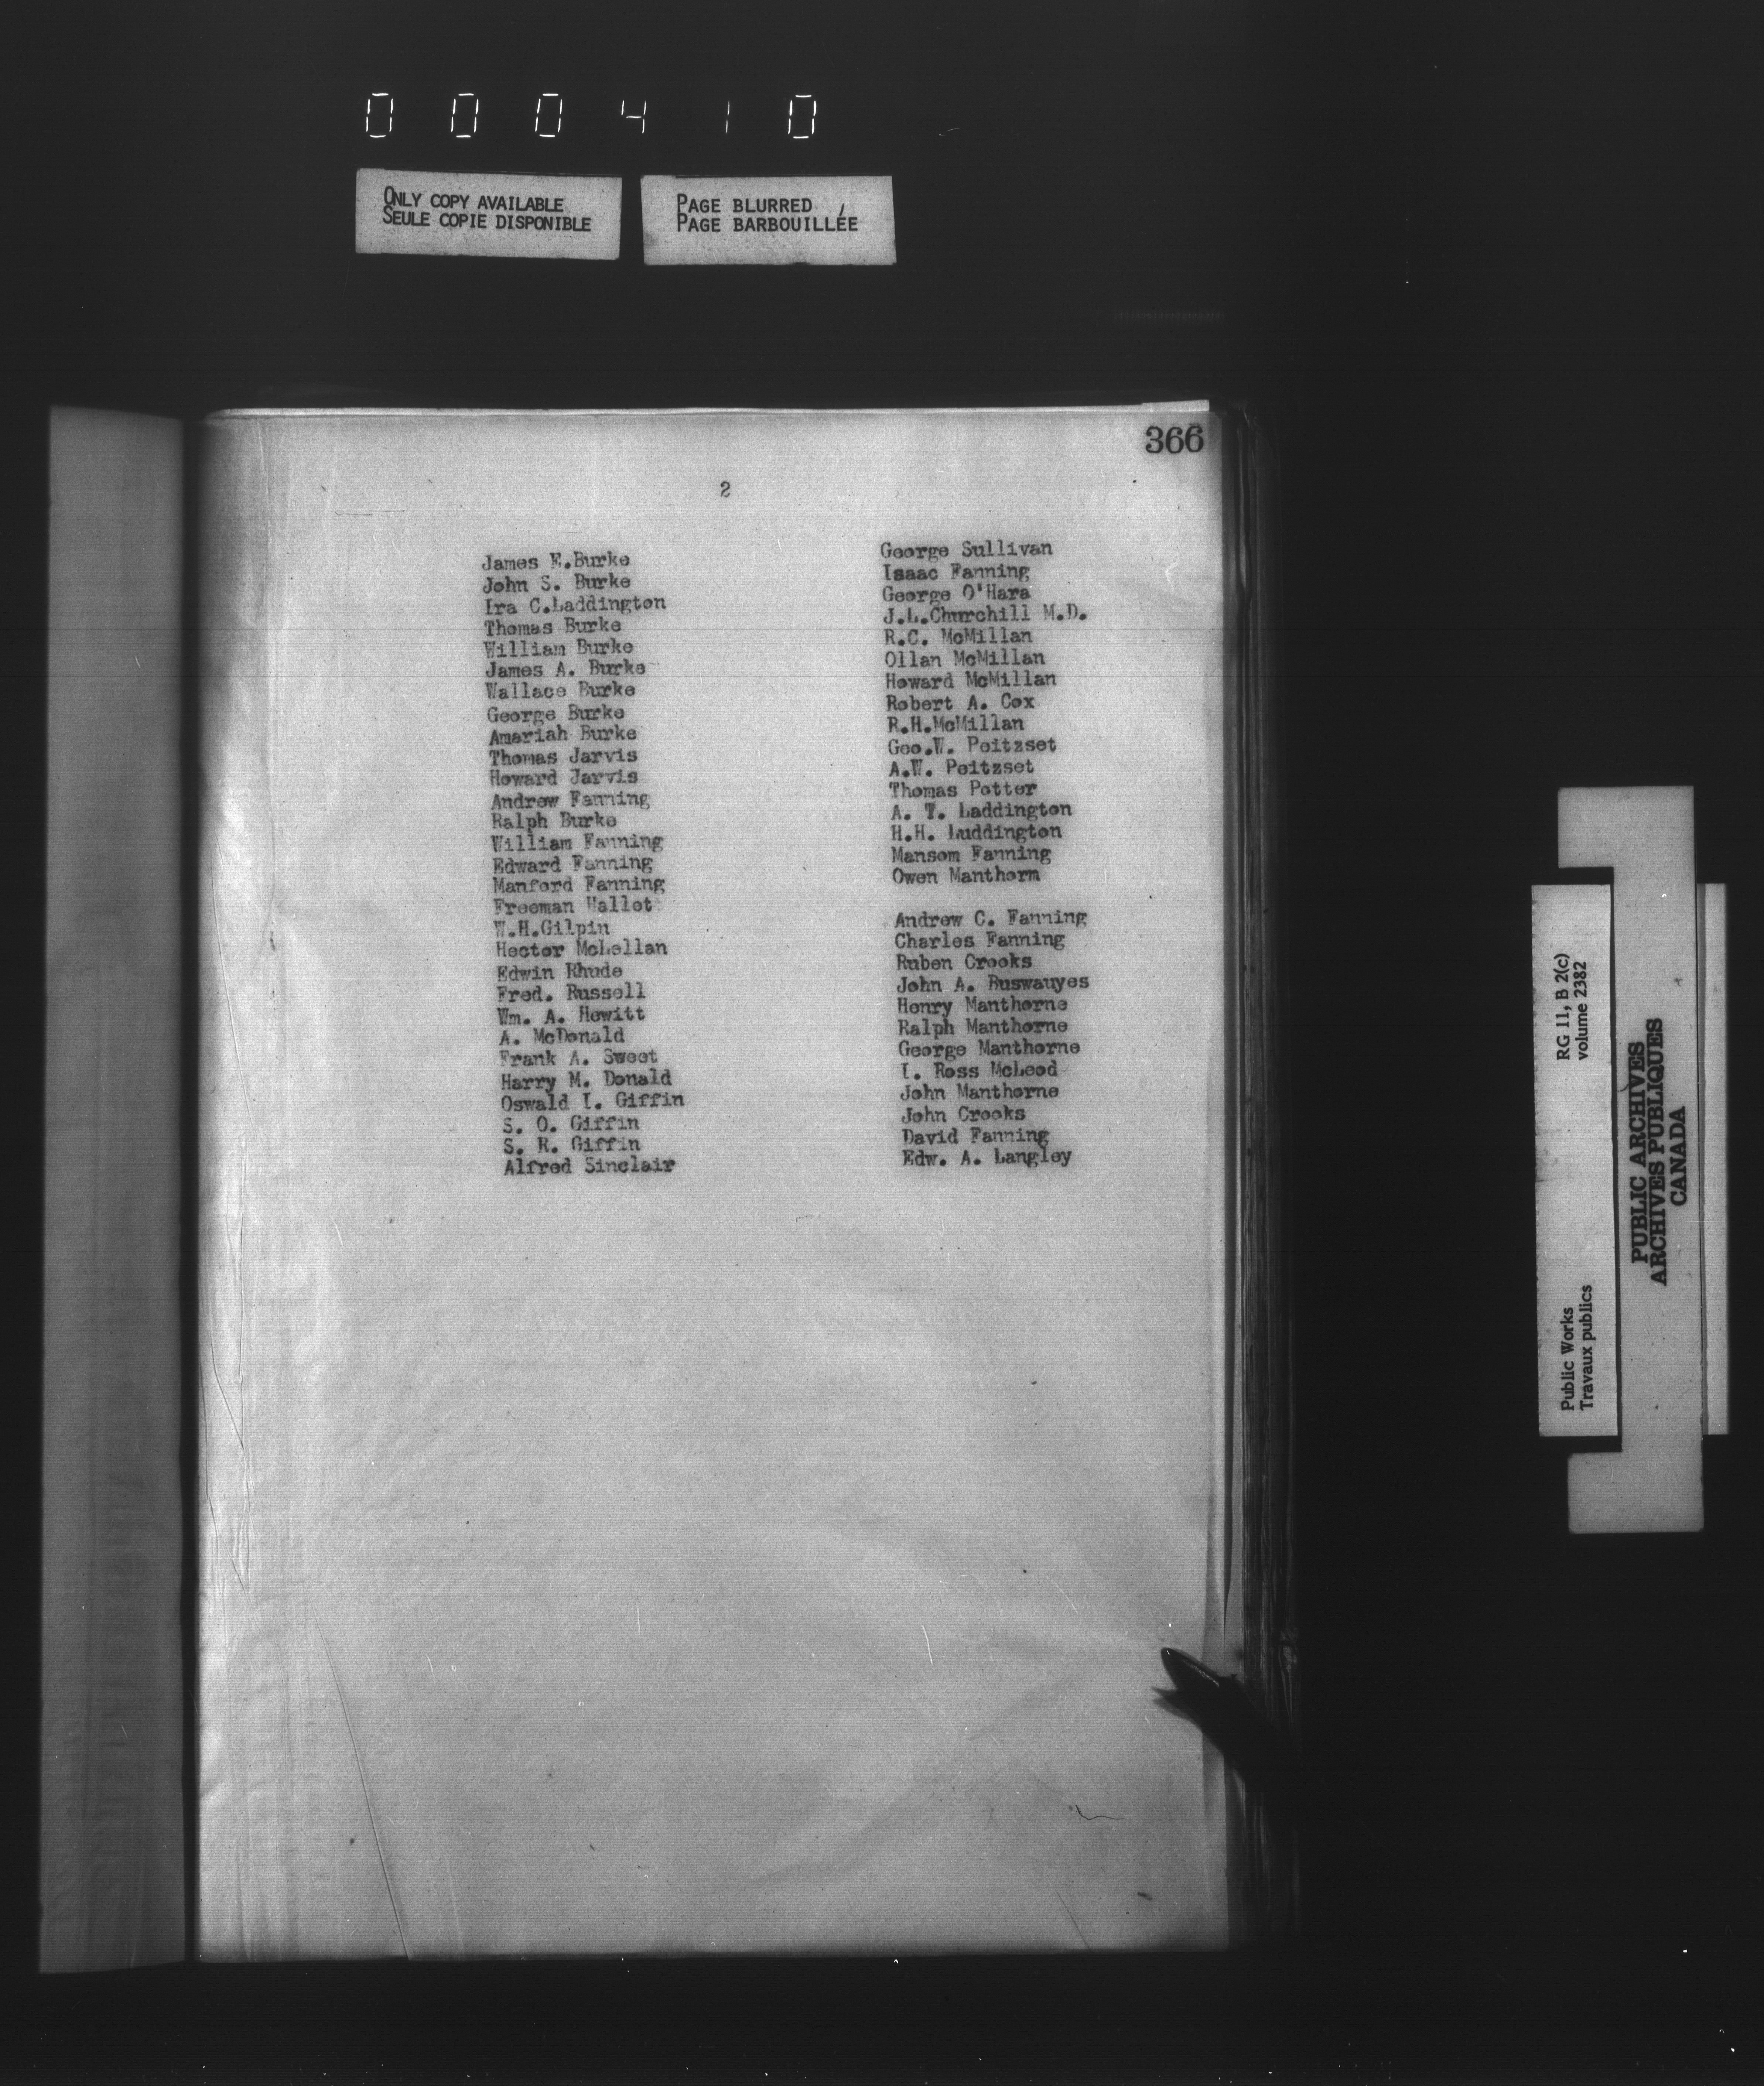 000410
ONLY COPY AVAILABLE
SEULE COPIE DISPONIBLE
PAGE BLURRED
PAGE BARBOUILLÉE
366
2
James E.Burke
John S. Burke
Ira C.Laddington
Thomas Burke
William Burke
James A. Burke
Wallace Burke
George Burke
Amariah Burke
Thomas Jarvis
Howard Jarvis
Andrew Fanning
Ralph Burke
William Fanning
Edward Fanning
Manford Fanning
Freeman Hallet
W.H.Gilpin
Hector McLellan
Edwin Rhude
Fred. Russell
Wm. A. Hewitt
A. McDonald
Frank A. Sweet
Harry M. Donald
Oswald I. Giffin
S. O. Giffin
S. R. Giffin
Alfred Sinclair
George Sullivan
Isaac Fanning
George O'Hara
J.L.Churchill M.D.
R.C. McMillan
Ollan McMillan
Howard McMillan
Robert A. Cox
R.H.McMillan
Geo.W. Peitzset
A.W. Peitzset
Thomas Potter
A. T. Laddington
H.H. Luddington
Mansom Fanning
Owen Manthorn
Andrew C. Fanning
Charles Fanning
Ruben Crooks
John A. Buswauyes
Henry Manthorne
Ralph Manthorne
George Manthorne
I. Ross McLeod
John Manthorne
John Crooks
David Fanning
Edw. A. Langley
Public Works
Travaux publics
RG 11, B 2(c)
volume 2382
PUBLIC ARCHIVES
ARCHIVES PUBLIQUES
CANADA